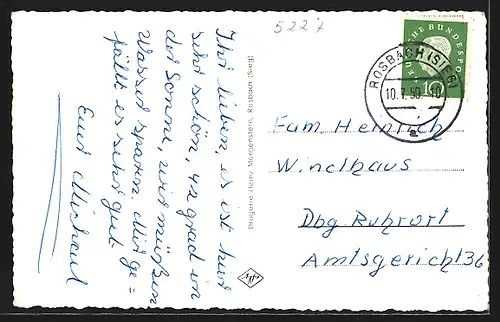 5227
Ihr lieben, es ist hier
sehr schön, 42 grad in
der Sonne, wir müßen
Wasser sparen. Mir ge=
fällt es sehr gut
Euer Michael
Drogerie Heinz Morgenstern, Rosbach (Sieg)
Agfa
DEUTSCHE BUNDESPOST
10
ROSBACH (SIEG)
10.7.59-10
a
Fam Heinrich
Windlhaus
Dbg Ruhrort
Amtsgericht 36